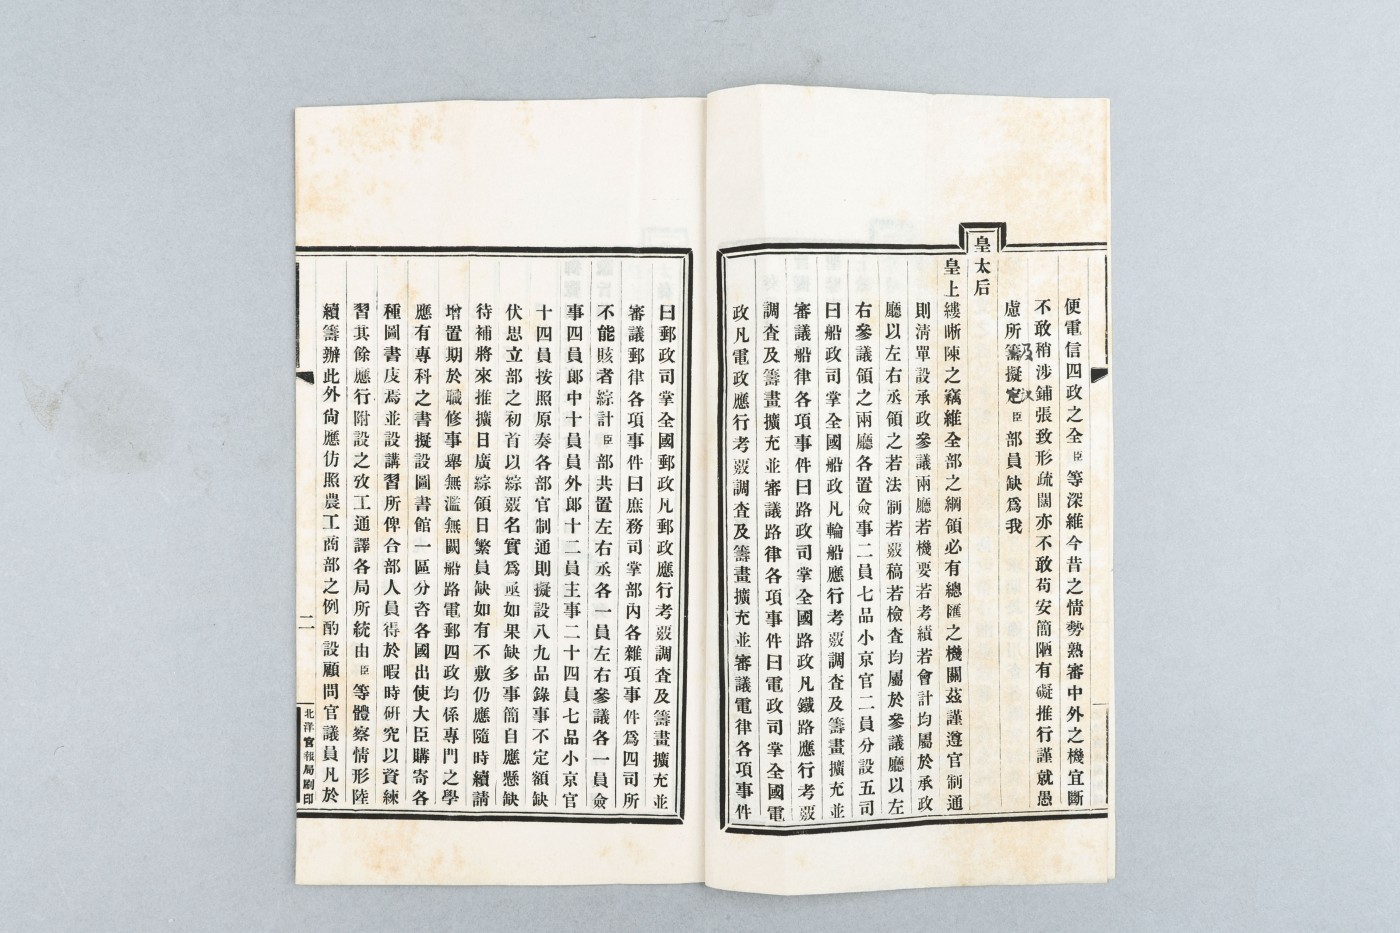 便電信四政之全臣等深維今昔之情勢熟審中外之機宜斷
不敢稍涉鋪張致形疏闊亦不敢苟安簡陋有礙推行謹就愚
慮所及籌擬定臣部員缺為我
皇太后
皇上縷晰陳之竊維全部之綱領必有總匯之機關茲謹遵官制通
則淸單設承政參議兩廳若機要若考績若會計均屬於承政
廳以左右丞領之若法制若覈稿若檢査均屬於參議廳以左
右參議領之兩廳各置僉事二員七品小京官二員分設五司
曰船政司掌全國船政凡輪船應行考覈調査及籌畫擴充並
審議船律各項事件曰路政司掌全國路政凡鐵路應行考覈
調査及籌畫擴充並審議路律各項事件曰電政司掌全國電
政凡電政應行考覈調査及籌畫擴充並審議電律各項事件
曰郵政司掌全國郵政凡郵政應行考覈調査及籌畫擴充並
審議郵律各項事件曰庶務司掌部內各雜項事件為四司所
不能賅者綜計臣部共置左右丞各一員左右參議各一員僉
事四員郞中十員員外郞十二員主事二十四員七品小京官
十四員按照原奏各部官制通則擬設八九品錄事不定額缺
伏思立部之初首以綜覈名實為亟如果缺多事簡自應懸缺
待補將來推擴日廣綜領日繁員缺如有不敷仍應隨時續請
增置期於職修事舉無濫無闕船路電郵四政均係專門之學
應有專科之書擬設圖書館一區分咨各國出使大臣購寄各
種圖書庋焉並設講習所俾合部人員得於暇時硏究以資練
習其餘應行附設之攷工通譯各局所統由臣等體察情形陸
續籌辦此外尙應仿照農工商部之例酌設顧問官議員凡於
二
北洋官報局刷印